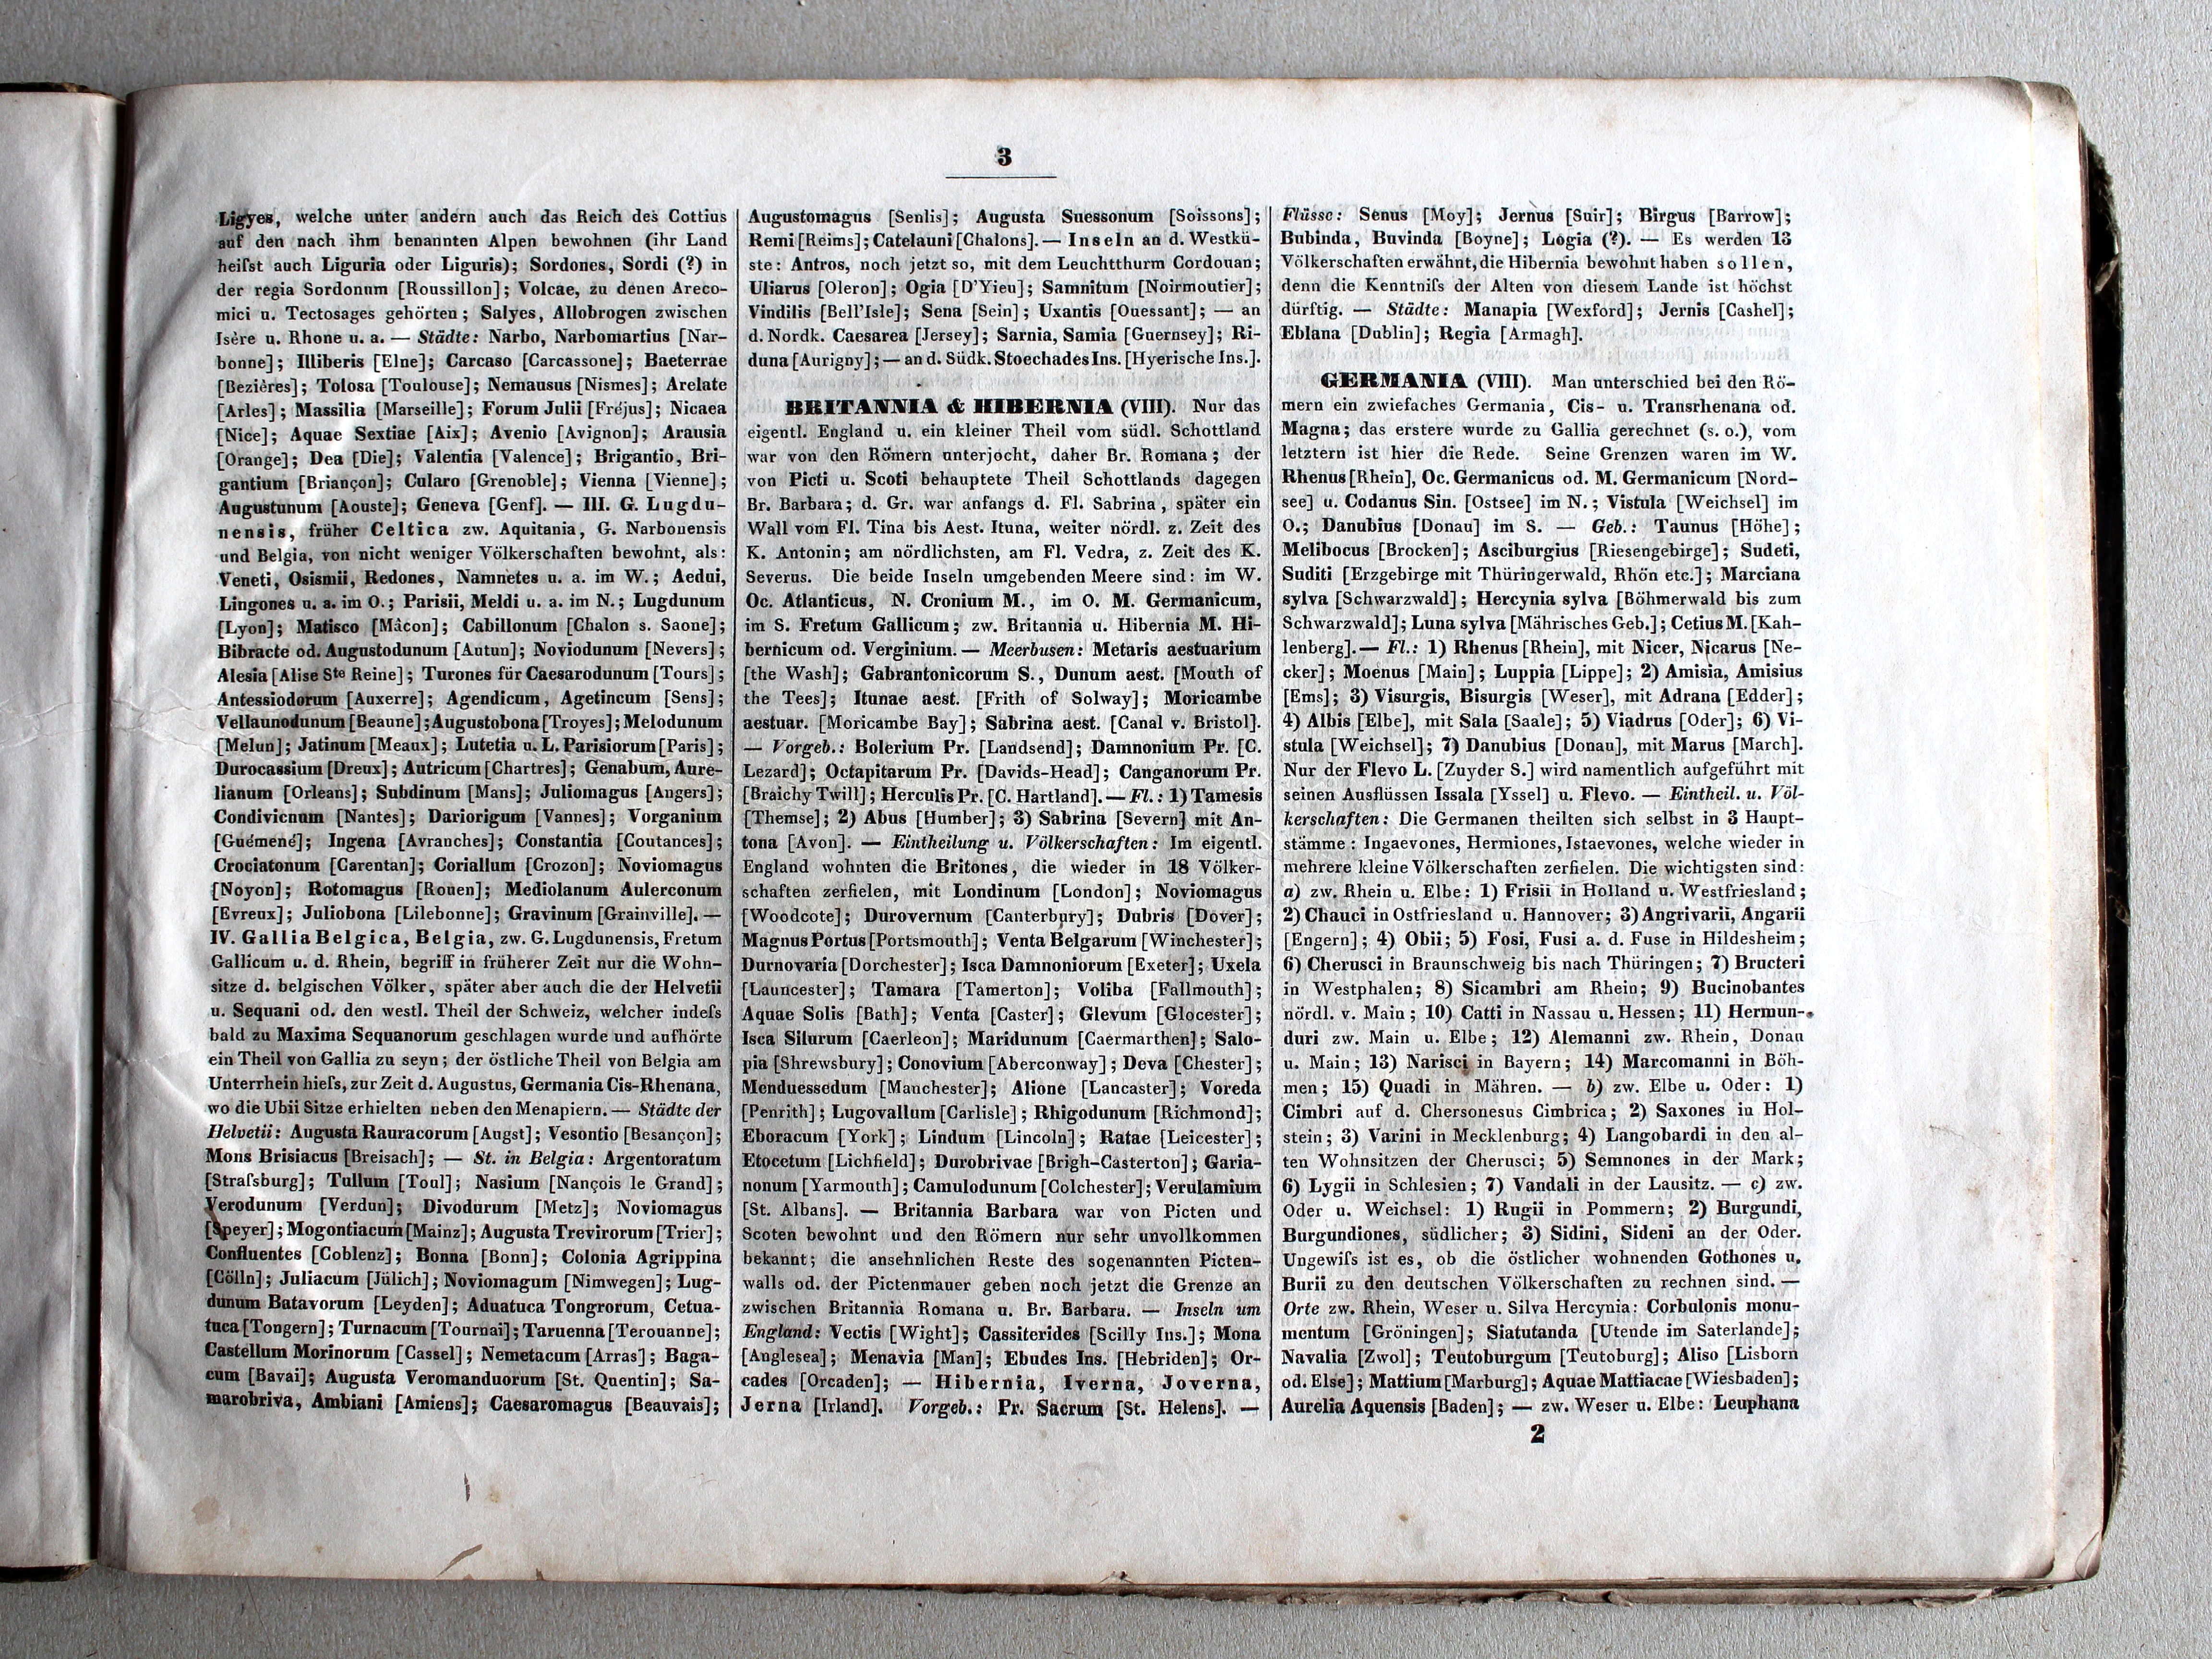 3
Ligyes, welche unter andern auch das Reich des Cottius
auf den nach ihm benannten Alpen bewohnen (ihr Land
heiſst auch Liguria oder Liguris); Sordones, Sordi (?) in
der regia Sordonum [Roussillon]; Volcae, zu denen Areco-
mici u. Tectosages gehörten; Salyes, Allobrogen zwischen
Isère u. Rhone u. a. — Städte: Narbo, Narbomartius [Nar-
bonne]; Illiberis [Elne]; Carcaso [Carcassone]; Baeterrae
[Bezières]; Tolosa [Toulouse]; Nemausus [Nismes]; Arelate
[Arles]; Massilia [Marseille]; Forum Julii [Fréjus]; Nicaea
[Nice]; Aquae Sextiae [Aix]; Avenio [Avignon]; Arausia
[Orange]; Dea [Die]; Valentia [Valence]; Brigantio, Bri-
gantium [Briançon]; Cularo [Grenoble]; Vienna [Vienne];
Augustunum [Aouste]; Geneva [Genf]. — III. G. Lugdu-
nensis, früher Celtica zw. Aquitania, G. Narbonensis
und Belgia, von nicht weniger Völkerschaften bewohnt, als:
Veneti, Osismii, Redones, Namnetes u. a. im W.; Aedui,
Lingones u. a. im O.; Parisii, Meldi u. a. im N.; Lugdunum
[Lyon]; Matisco [Mâcon]; Cabillonum [Chalon s. Saone];
Bibracte od. Augustodunum [Autun]; Noviodunum [Nevers];
Alesia [Alise Ste Reine]; Turones für Caesarodunum [Tours];
Antessiodorum [Auxerre]; Agendicum, Agetincum [Sens];
Vellaunodunum [Beaune]; Augustobona [Troyes]; Melodunum
[Melun]; Jatinum [Meaux]; Lutetia u. L. Parisiorum [Paris];
Durocassium [Dreux]; Autricum [Chartres]; Genabum, Aure-
lianum [Orleans]; Subdinum [Mans]; Juliomagus [Angers];
Condivicnum [Nantes]; Dariorigum [Vannes]; Vorganium
[Guémené]; Ingena [Avranches]; Constantia [Coutances];
Crociatonum [Carentan]; Coriallum [Crozon]; Noviomagus
[Noyon]; Rotomagus [Rouen]; Mediolanum Aulerconum
[Evreux]; Juliobona [Lilebonne]; Gravinum [Grainville]. —
IV. Gallia Belgica, Belgia, zw. G. Lugdunensis, Fretum
Gallicum u. d. Rhein, begriff in früherer Zeit nur die Wohn-
sitze d. belgischen Völker, später aber auch die der Helvetii
u. Sequani od. den westl. Theil der Schweiz, welcher indeſs
bald zu Maxima Sequanorum geschlagen wurde und aufhörte
ein Theil von Gallia zu seyn; der östliche Theil von Belgia am
Unterrhein hieſs, zur Zeit d. Augustus, Germania Cis-Rhenana,
wo die Ubii Sitze erhielten neben den Menapiern. — Städte der
Helvetii: Augusta Rauracorum [Augst]; Vesontio [Besançon];
Mons Brisiacus [Breisach]; — St. in Belgia: Argentoratum
[Straſsburg]; Tullum [Toul]; Nasium [Nançois le Grand];
Verodunum [Verdun]; Divodurum [Metz]; Noviomagus
[Speyer]; Mogontiacum [Mainz]; Augusta Trevirorum [Trier];
Confluentes [Coblenz]; Bonna [Bonn]; Colonia Agrippina
[Cölln]; Juliacum [Jülich]; Noviomagum [Nimwegen]; Lug-
dunum Batavorum [Leyden]; Aduatuca Tongrorum, Cetua-
tuca [Tongern]; Turnacum [Tournai]; Taruenna [Terouanne];
Castellum Morinorum [Cassel]; Nemetacum [Arras]; Baga-
cum [Bavai]; Augusta Veromanduorum [St. Quentin]; Sa-
marobriva, Ambiani [Amiens]; Caesaromagus [Beauvais];
Augustomagus [Senlis]; Augusta Suessonum [Soissons];
Remi [Reims]; Catelauni [Chalons]. — Inseln an d. Westkü-
ste: Antros, noch jetzt so, mit dem Leuchtthurm Cordouan;
Uliarus [Oleron]; Ogia [D'Yieu]; Samnitum [Noirmoutier];
Vindilis [Bell'Isle]; Sena [Sein]; Uxantis [Ouessant]; — an
d. Nordk. Caesarea [Jersey]; Sarnia, Samia [Guernsey]; Ri-
duna [Aurigny]; — an d. Südk. Stoechades Ins. [Hyerische Ins.].
BRITANNIA & HIBERNIA (VIII). Nur das
eigentl. England u. ein kleiner Theil vom südl. Schottland
war von den Römern unterjocht, daher Br. Romana; der
von Picti u. Scoti behauptete Theil Schottlands dagegen
Br. Barbara; d. Gr. war anfangs d. Fl. Sabrina, später ein
Wall vom Fl. Tina bis Aest. Ituna, weiter nördl. z. Zeit des
K. Antonin; am nördlichsten, am Fl. Vedra, z. Zeit des K.
Severus. Die beide Inseln umgebenden Meere sind: im W.
Oc. Atlanticus, N. Cronium M., im O. M. Germanicum,
im S. Fretum Gallicum; zw. Britannia u. Hibernia M. Hi-
bernicum od. Verginium. — Meerbusen: Metaris aestuarium
[the Wash]; Gabrantonicorum S., Dunum aest. [Mouth of
the Tees]; Itunae aest. [Frith of Solway]; Moricambe
aestuar. [Moricambe Bay]; Sabrina aest. [Canal v. Bristol].
— Vorgeb.: Bolerium Pr. [Landsend]; Damnonium Pr. [C.
Lezard]; Octapitarum Pr. [Davids-Head]; Canganorum Pr.
[Braichy Twill]; Herculis Pr. [C. Hartland]. — Fl.: 1) Tamesis
[Themse]; 2) Abus [Humber]; 3) Sabrina [Severn] mit An-
tona [Avon]. — Eintheilung u. Völkerschaften: Im eigentl.
England wohnten die Britones, die wieder in 18 Völker-
schaften zerfielen, mit Londinum [London]; Noviomagus
[Woodcote]; Durovernum [Canterbury]; Dubris [Dover];
Magnus Portus [Portsmouth]; Venta Belgarum [Winchester];
Durnovaria [Dorchester]; Isca Damnoniorum [Exeter]; Uxela
[Launcester]; Tamara [Tamerton]; Voliba [Fallmouth];
Aquae Solis [Bath]; Venta [Caster]; Glevum [Glocester];
Isca Silurum [Caerleon]; Maridunum [Caermarthen]; Salo-
pia [Shrewsbury]; Conovium [Aberconway]; Deva [Chester];
Menduessedum [Manchester]; Alione [Lancaster]; Voreda
[Penrith]; Lugovallum [Carlisle]; Rhigodunum [Richmond];
Eboracum [York]; Lindum [Lincoln]; Ratae [Leicester];
Etocetum [Lichfield]; Durobrivae [Brigh-Casterton]; Garia-
nonum [Yarmouth]; Camulodunum [Colchester]; Verulamium
[St. Albans]. — Britannia Barbara war von Picten und
Scoten bewohnt und den Römern nur sehr unvollkommen
bekannt; die ansehnlichen Reste des sogenannten Picten-
walls od. der Pictenmauer geben noch jetzt die Grenze an
zwischen Britannia Romana u. Br. Barbara. — Inseln um
England: Vectis [Wight]; Cassiterides [Scilly Ins.]; Mona
[Anglesea]; Menavia [Man]; Ebudes Ins. [Hebriden]; Or-
cades [Orcaden]; — Hibernia, Iverna, Joverna,
Jerna [Irland]. Vorgeb.: Pr. Sacrum [St. Helens]. —
Flüsse: Senus [Moy]; Jernus [Suir]; Birgus [Barrow];
Bubinda, Buvinda [Boyne]; Logia (?). — Es werden 13
Völkerschaften erwähnt, die Hibernia bewohnt haben sollen,
denn die Kenntniſs der Alten von diesem Lande ist höchst
dürftig. — Städte: Manapia [Wexford]; Jernis [Cashel];
Eblana [Dublin]; Regia [Armagh].
GERMANIA (VIII). Man unterschied bei den Rö-
mern ein zwiefaches Germania, Cis- u. Transrhenana od.
Magna; das erstere wurde zu Gallia gerechnet (s. o.), vom
letztern ist hier die Rede. Seine Grenzen waren im W.
Rhenus [Rhein], Oc. Germanicus od. M. Germanicum [Nord-
see] u. Codanus Sin. [Ostsee] im N.; Vistula [Weichsel] im
O.; Danubius [Donau] im S. — Geb.: Taunus [Höhe];
Melibocus [Brocken]; Asciburgius [Riesengebirge]; Sudeti,
Suditi [Erzgebirge mit Thüringerwald, Rhön etc.]; Marciana
sylva [Schwarzwald]; Hercynia sylva [Böhmerwald bis zum
Schwarzwald]; Luna sylva [Mährisches Geb.]; Cetius M. [Kah-
lenberg]. — Fl.: 1) Rhenus [Rhein], mit Nicer, Nicarus [Ne-
cker]; Moenus [Main]; Luppia [Lippe]; 2) Amisia, Amisius
[Ems]; 3) Visurgis, Bisurgis [Weser], mit Adrana [Edder];
4) Albis [Elbe], mit Sala [Saale]; 5) Viadrus [Oder]; 6) Vi-
stula [Weichsel]; 7) Danubius [Donau], mit Marus [March].
Nur der Flevo L. [Zuyder S.] wird namentlich aufgeführt mit
seinen Ausflüssen Issala [Yssel] u. Flevo. — Eintheil. u. Völ-
kerschaften: Die Germanen theilten sich selbst in 3 Haupt-
stämme: Ingaevones, Hermiones, Istaevones, welche wieder in
mehrere kleine Völkerschaften zerfielen. Die wichtigsten sind:
a) zw. Rhein u. Elbe: 1) Frisii in Holland u. Westfriesland;
2) Chauci in Ostfriesland u. Hannover; 3) Angrivarii, Angarii
[Engern]; 4) Obii; 5) Fosi, Fusi a. d. Fuse in Hildesheim;
6) Cherusci in Braunschweig bis nach Thüringen; 7) Bructeri
in Westphalen; 8) Sicambri am Rhein; 9) Bucinobantes
nördl. v. Main; 10) Catti in Nassau u. Hessen; 11) Hermun-
duri zw. Main u. Elbe; 12) Alemanni zw. Rhein, Donau
u. Main; 13) Narisci in Bayern; 14) Marcomanni in Böh-
men; 15) Quadi in Mähren. — b) zw. Elbe u. Oder: 1)
Cimbri auf d. Chersonesus Cimbrica; 2) Saxones in Hol-
stein; 3) Varini in Mecklenburg; 4) Langobardi in den al-
ten Wohnsitzen der Cherusci; 5) Semnones in der Mark;
6) Lygii in Schlesien; 7) Vandali in der Lausitz. — c) zw.
Oder u. Weichsel: 1) Rugii in Pommern; 2) Burgundi,
Burgundiones, südlicher; 3) Sidini, Sideni an der Oder.
Ungewiſs ist es, ob die östlicher wohnenden Gothones u.
Burii zu den deutschen Völkerschaften zu rechnen sind. —
Orte zw. Rhein, Weser u. Silva Hercynia: Corbulonis monu-
mentum [Gröningen]; Siatutanda [Utende im Saterlande];
Navalia [Zwol]; Teutoburgum [Teutoburg]; Aliso [Lisborn
od. Else]; Mattium [Marburg]; Aquae Mattiacae [Wiesbaden];
Aurelia Aquensis [Baden]; — zw. Weser u. Elbe: Leuphana
2